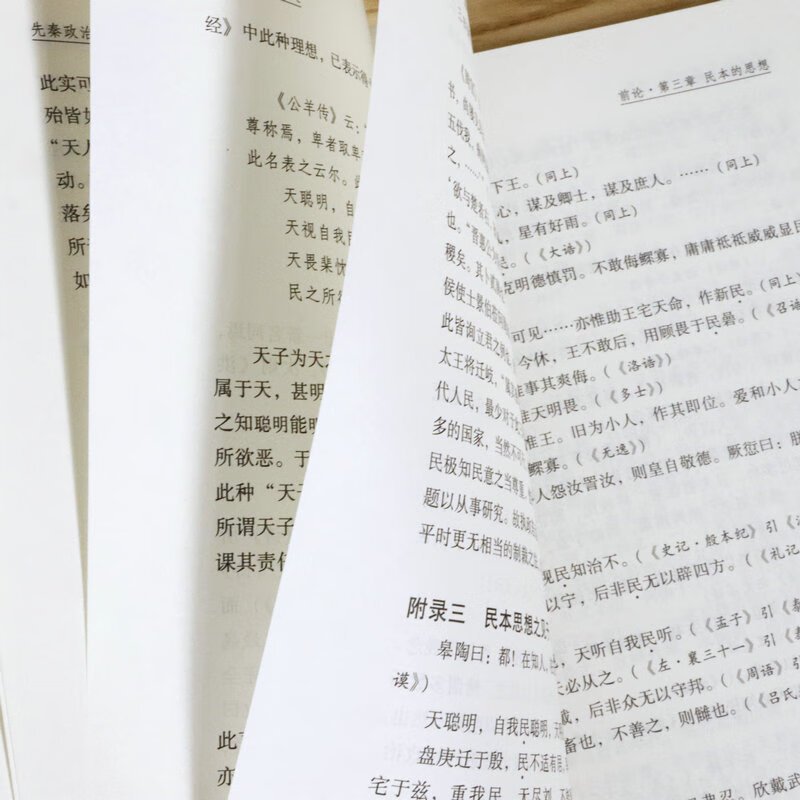 先秦政治
此实可
殆皆如
“天人
动。
落矣
所
如
经》中此种理想，已表示得
《公羊传》云：“
尊称焉，卑者取卑
此名表之云尔。
天聪明，自
天视自我民
天畏棐忱
民之所欲
天子为天之
属于天，甚明
之知聪明能明
所欲恶。于
此种“天子
所谓天子
课其责任
此
亦
书，
五伐我，
之，……”
“欲与楚者
也。”晋惠公
稷矣。其卜贰
侯使士
此皆询立君之
太王将迁岐，
代人民，最少对于
多的国家，当然不
民极知民意之当尊重，
题以从事研究。故执政
平时更无相当的制裁之
附录三 民本思想之见于
皋陶曰：都！在知人，
谟》）
天聪明，自我民聪明，天
盘庚迁于殷，民不适有居，
宅于兹，重我民，无尽刘。
前论·第三章 民本的思想
下王。（同上）
心，谋及卿士，谋及庶人。……（同上）
，星有好雨。（同上）
（《大诰》）
克明德慎罚。不敢侮鳏寡，庸庸祗祗威威显民
可见……亦惟助王宅天命，作新民。（同上）
今休，王不敢后，用顾畏于民碞。（《召诰
事其爽侮。（《洛诰》）
惟天明畏。（《多士》）
惟王。旧为小人，作其即位。爱和小人
鳏寡。（《无逸》）
人怨汝詈汝，则皇自敬德。厥愆曰：朕
视民知治不。（《史记·殷本纪》引《
以宁，后非民无以辟四方。（《礼记
，天听自我民听。（《孟子》引《泰
天必从之。（《左·襄三十一》引《泰
戴，后非众无以守邦。（《周语》引
畜也，不善之，则雠也。（《吕氏
欣戴武